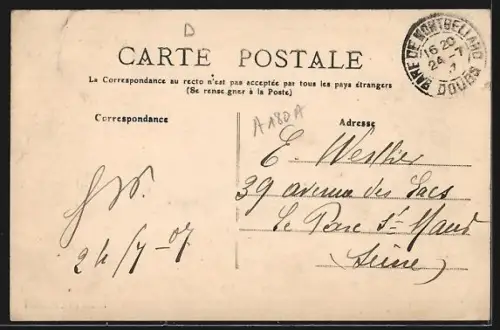 D
CARTE POSTALE
La Correspondance au recto n'est pas acceptée par tous les pays étrangers
(Se renseigner à la Poste)
GARE DE MONTBELIARD
16 20
24 - 7
DOUBS
Correspondance
A180A
Adresse
E.
39 avenue des Lacs
Le Parc St Maur
Seine)
24/7-07